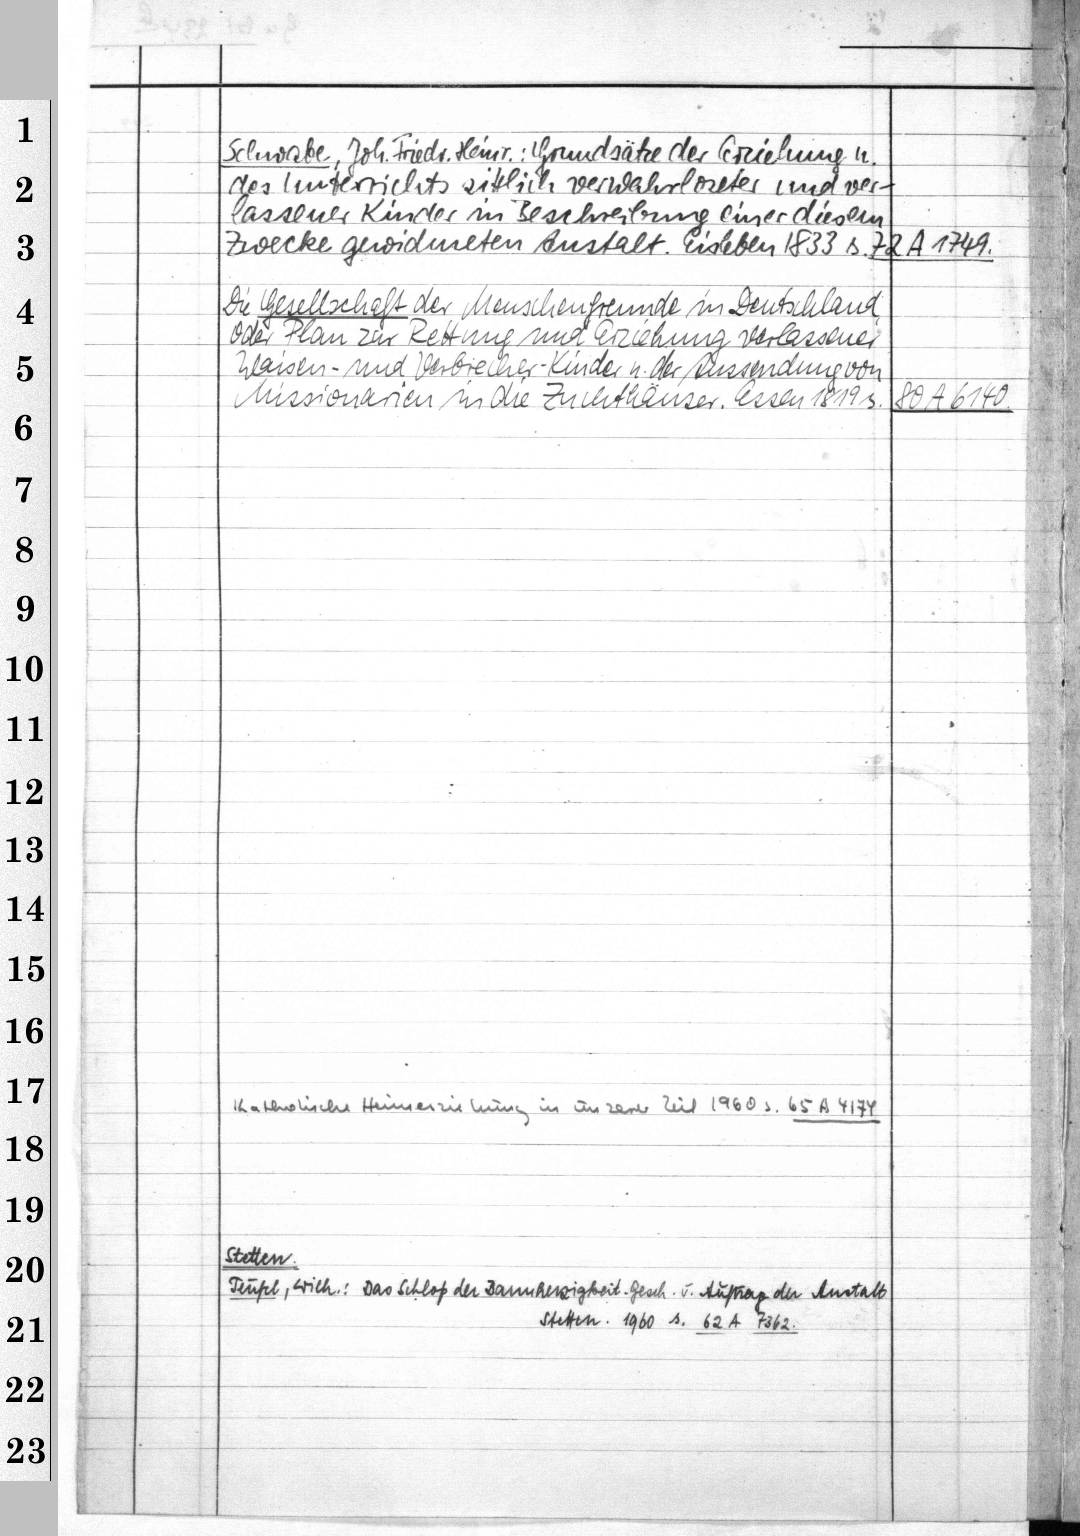 1
Schwabe, Joh. Friedr. Heinr.: Grundsätze der Erziehung u.
2
des Unterrichts sittlich verwahrloseter und ver-
lassener Kinder in Beschreibung einer diesem
3
Zwecke gewidmeten Anstalt. Eisleben 1833 s. 72 A 1749.
4
Die Gesellschaft der Menschenfreunde in Deutschland
oder Plan zur Rettung und Erziehung verlassener
5
Waisen- und Verbrecher-Kinder u. der Aussendung von
Missionarien in die Zuchthäuser. Essen 1819 s. 80 A 6140.
6
7
8
9
10
11
12
13
14
15
16
17
Katholische Heimerziehung in unserer Zeit 1960 s. 65 A 4174
18
19
Stetten.
20
Teufel, Wilh.: Das Schloß der Barmherzigkeit. Gesch. u. Auftrag der Anstalt
21
Stetten. 1960 s. 62 A 7362.
22
23